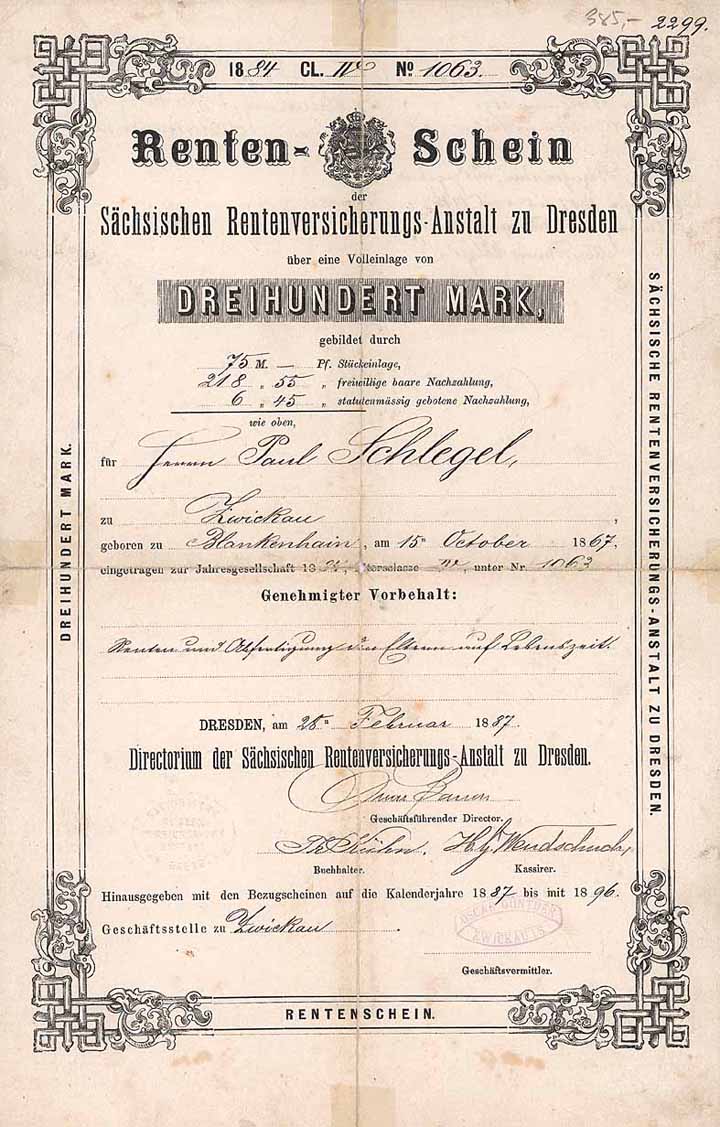 385,- 2299.
1884 CL. IV No 1063.
Renten-Schein
der
Sächsischen Rentenversicherungs-Anstalt zu Dresden
über eine Volleinlage von
DREIHUNDERT MARK,
gebildet durch
75 M. — Pf. Stückeinlage,
218 „ 55 „ freiwillige baare Nachzahlung,
6 „ 45 „ statutenmässig gebotene Nachzahlung,
wie oben,
für Herrn Paul Schlegel,
zu Zwickau,
geboren zu Blankenhain, am 15n October 1867,
eingetragen zur Jahresgesellschaft 1884, Altersclasse IV, unter Nr. 1063
Genehmigter Vorbehalt:
Renten und Abfertigung den Eltern auf Lebenszeit.
DRESDEN, am 28n Februar 1887.
Directorium der Sächsischen Rentenversicherungs-Anstalt zu Dresden.
Geschäftsführender Director.
Th. Kühn. Wendschuch,
Buchhalter. Kassirer.
Hinausgegeben mit den Bezugscheinen auf die Kalenderjahre 1887 bis mit 1896.
Geschäftsstelle zu Zwickau.
OSCAR GÜNTHER
ZWICKAU I/S.
Geschäftsvermittler.
RENTENSCHEIN.
DREIHUNDERT MARK.
SÄCHSISCHE RENTENVERSICHERUNGS-ANSTALT ZU DRESDEN.